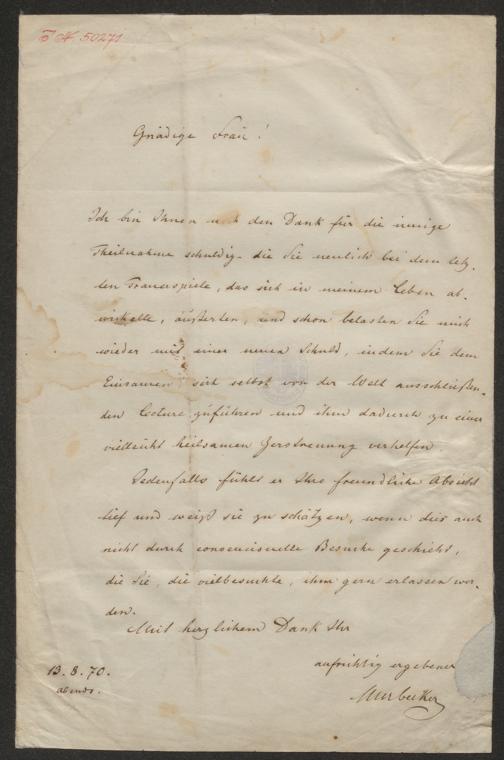 I N 50271
Gnädige Frau!
Ich bin Ihnen noch den Dank für die innige
Theilnahme schuldig, die Sie neulich bei dem letz-
ten Trauerspiele, das sich in meinem Leben ab-
wickelte, äußerten, und schon belasten Sie mich
wieder mit einer neuen Schuld, indem Sie dem
Einsamen sich selbst von der Welt ausschließen-
den Lecture zuführen und ihm dadurch zu einer
vielleicht heilsamen Zerstreuung verhelfen.
Jedenfalls fühlt er Ihre freundliche Absicht
tief und weiß sie zu schätzen, wenn dies auch
nicht durch convencionelle Besuche geschieht,
die Sie, die vielbesuchte, ihm gern erlassen wer-
den.
Mit herzlichem Dank Ihr
aufrichtig ergebener
13.8.70.
abends.